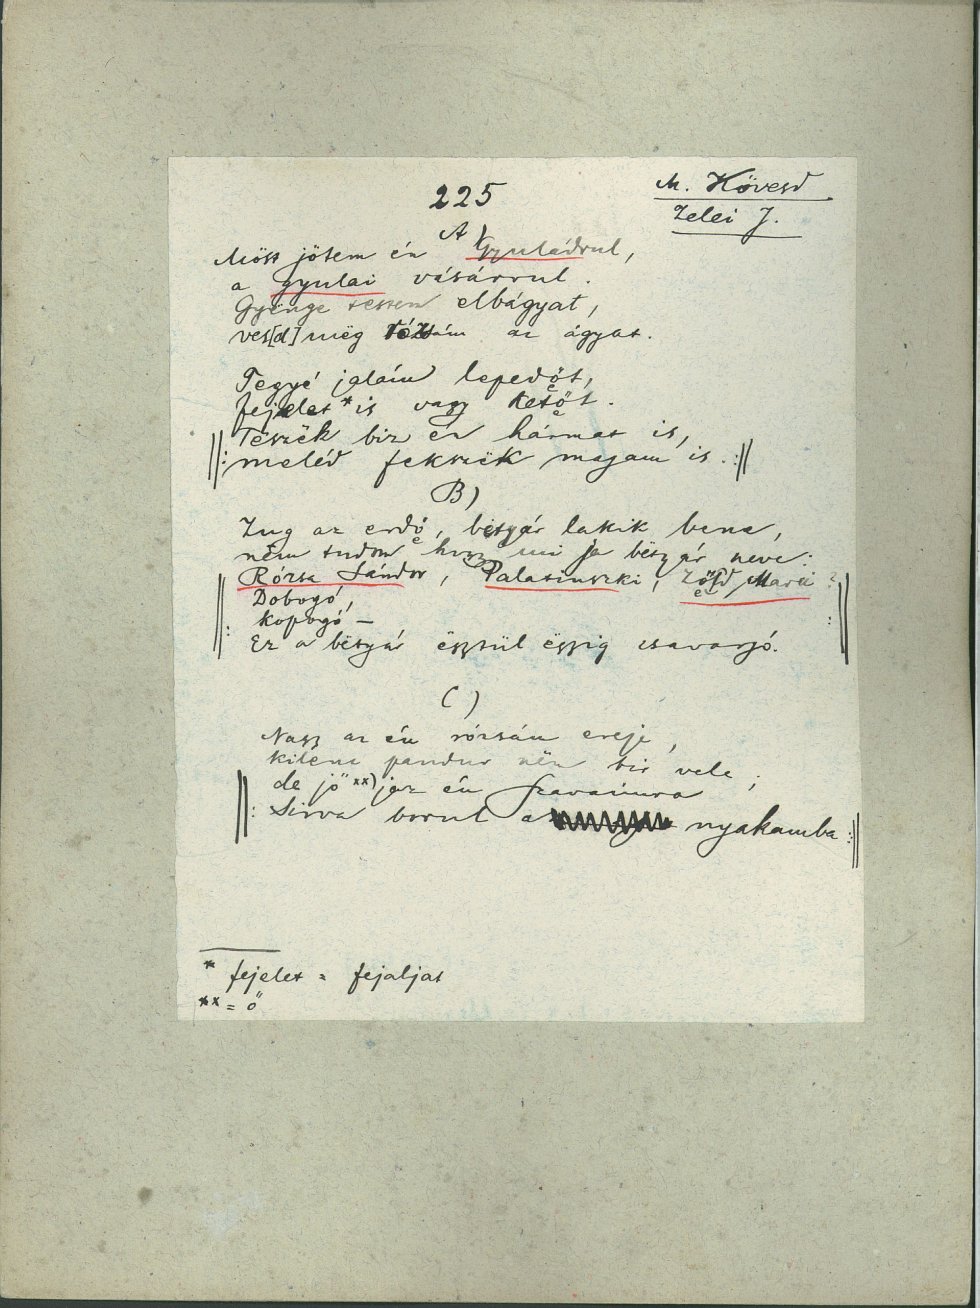 225
M. Kövesd
Zelei J.
A)
Möst jötem én Gyuláórul,
a gyulai vásárrul.
Gyënge testem elbágyat,
ves[d] mëg rózsám az ágyat.
Tegyé jalám lepedőt,
fejelet * is vagy kettőt.
||: Tëszëk biz én hármat is,
melëd fekszëk magam is. :||
B)
Zug az erdő, bëtyár lakik bene,
nëm tudom hogy mi ja bëtyár neve:
||: Rózsa Sándor, Palatinszki, Zőfd Marci? :||
Dobogó,
kopogó —
Ez a bëtyár ësztül ëszig csavargó.
C)
Nagy az én rózsám ereje,
kilenc pandur nëm bir vele;
||: de jö xx) jaz én szavaimra
Sirva borul a nyakamba :||
* fejelet = fejaljat
xx = ő